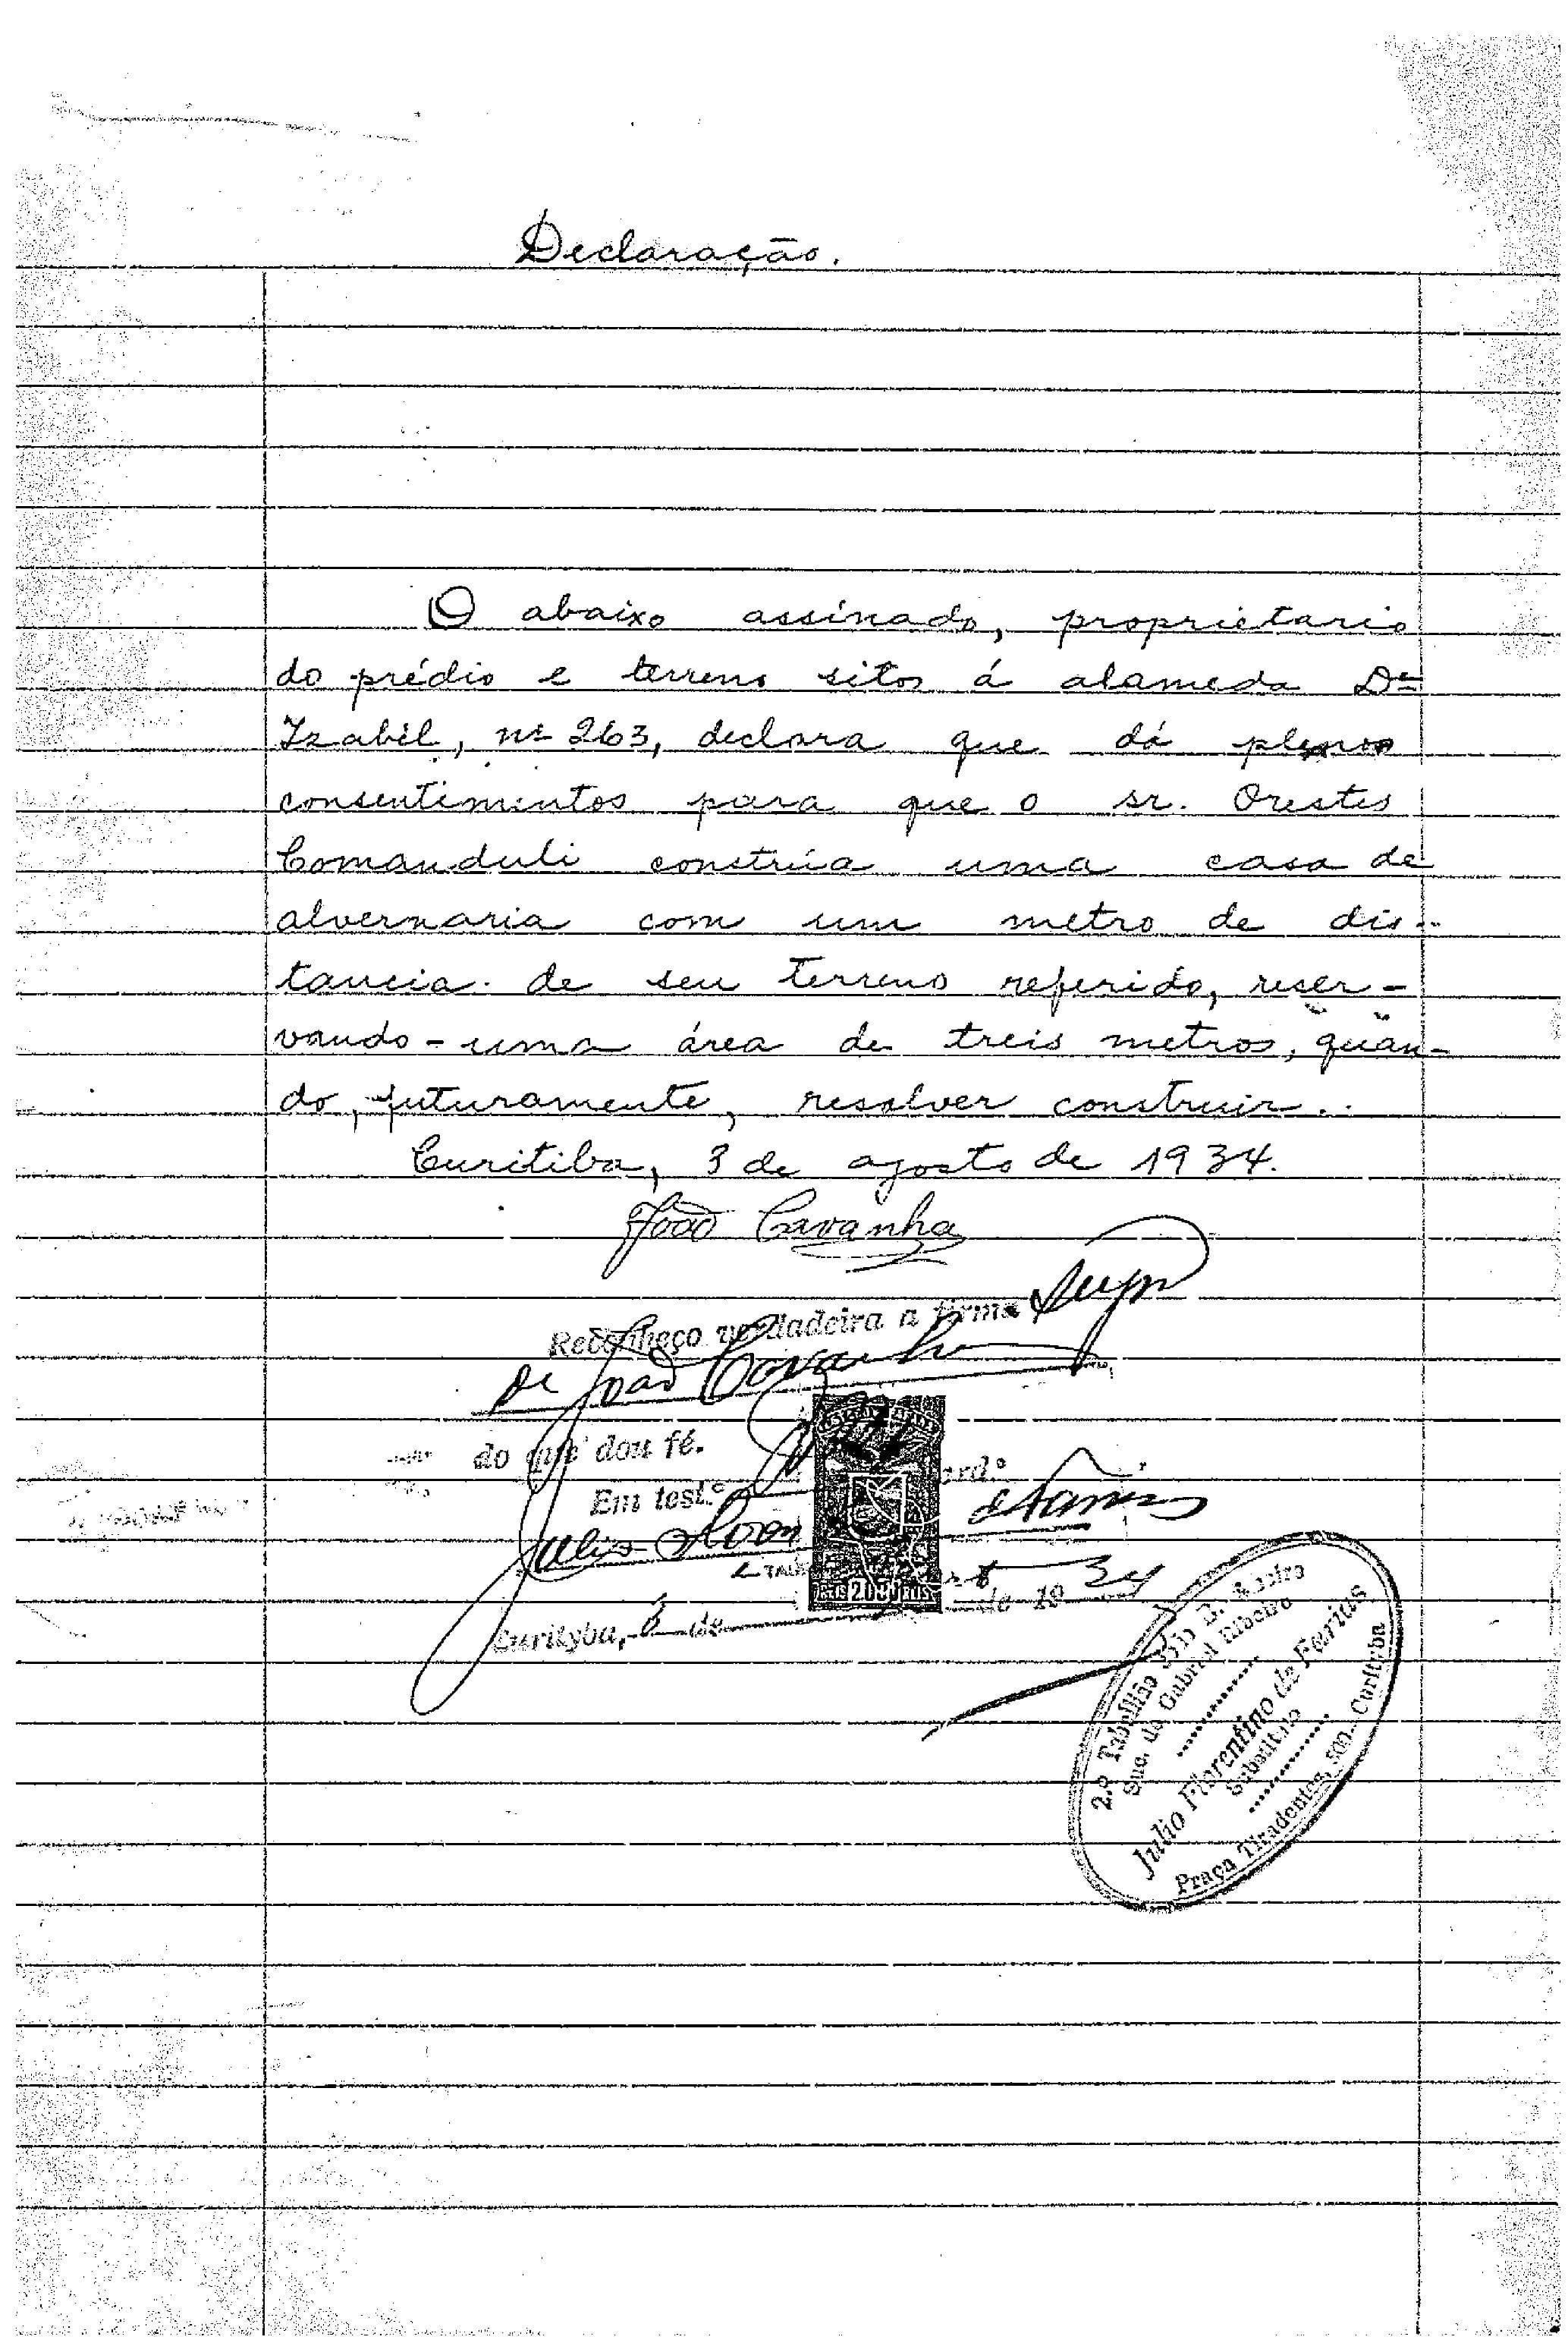 Declaração.
O abaixo assinado, proprietario
do prédio e terreno sitos á alameda Dª
Izabél, nº 263, declara que dá plenos
consentimentos para que o sr. Orestes
Comanduli construa uma casa de
alvernaria com um metro de dis-
tancia de seu terreno referido, reser-
vando-uma área de treis metros, quan-
do, futuramente, resolver construir.
Curitiba, 3 de agosto de 1934.
João Cavanha
Reconheço verdadeira a firma supra
de João Cavanha
do que dou fé.
Em test.º
Julio
Curityba, de de 19 34
2.º Tabellião
Suc. de Gabriel Ribeiro
Julio Florentino de Farias
Substituto
Praça Tiradentes, 500 - Curityba